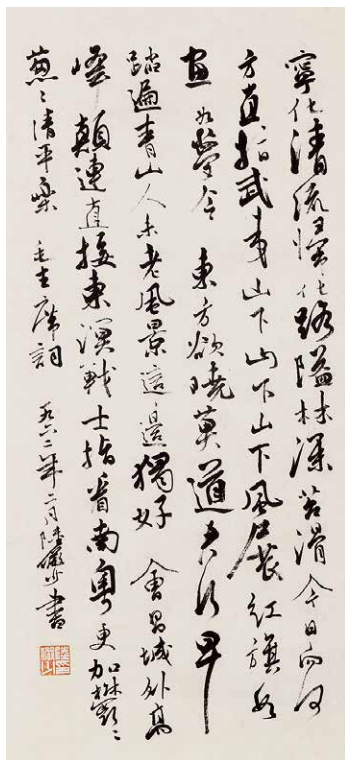 寧化清流歸化路隘林深苔滑今日向何
方直指武夷山下山下山下風展紅旗如
畫如夢令 東方欲曉莫道君行早
踏遍青山人未老風景這邊獨好 會昌城外高
峰顛連直接東溟戰士指看南粵更加鬱〻
蔥〻清平樂 毛主席詞 一九六二年二月陸儼少書